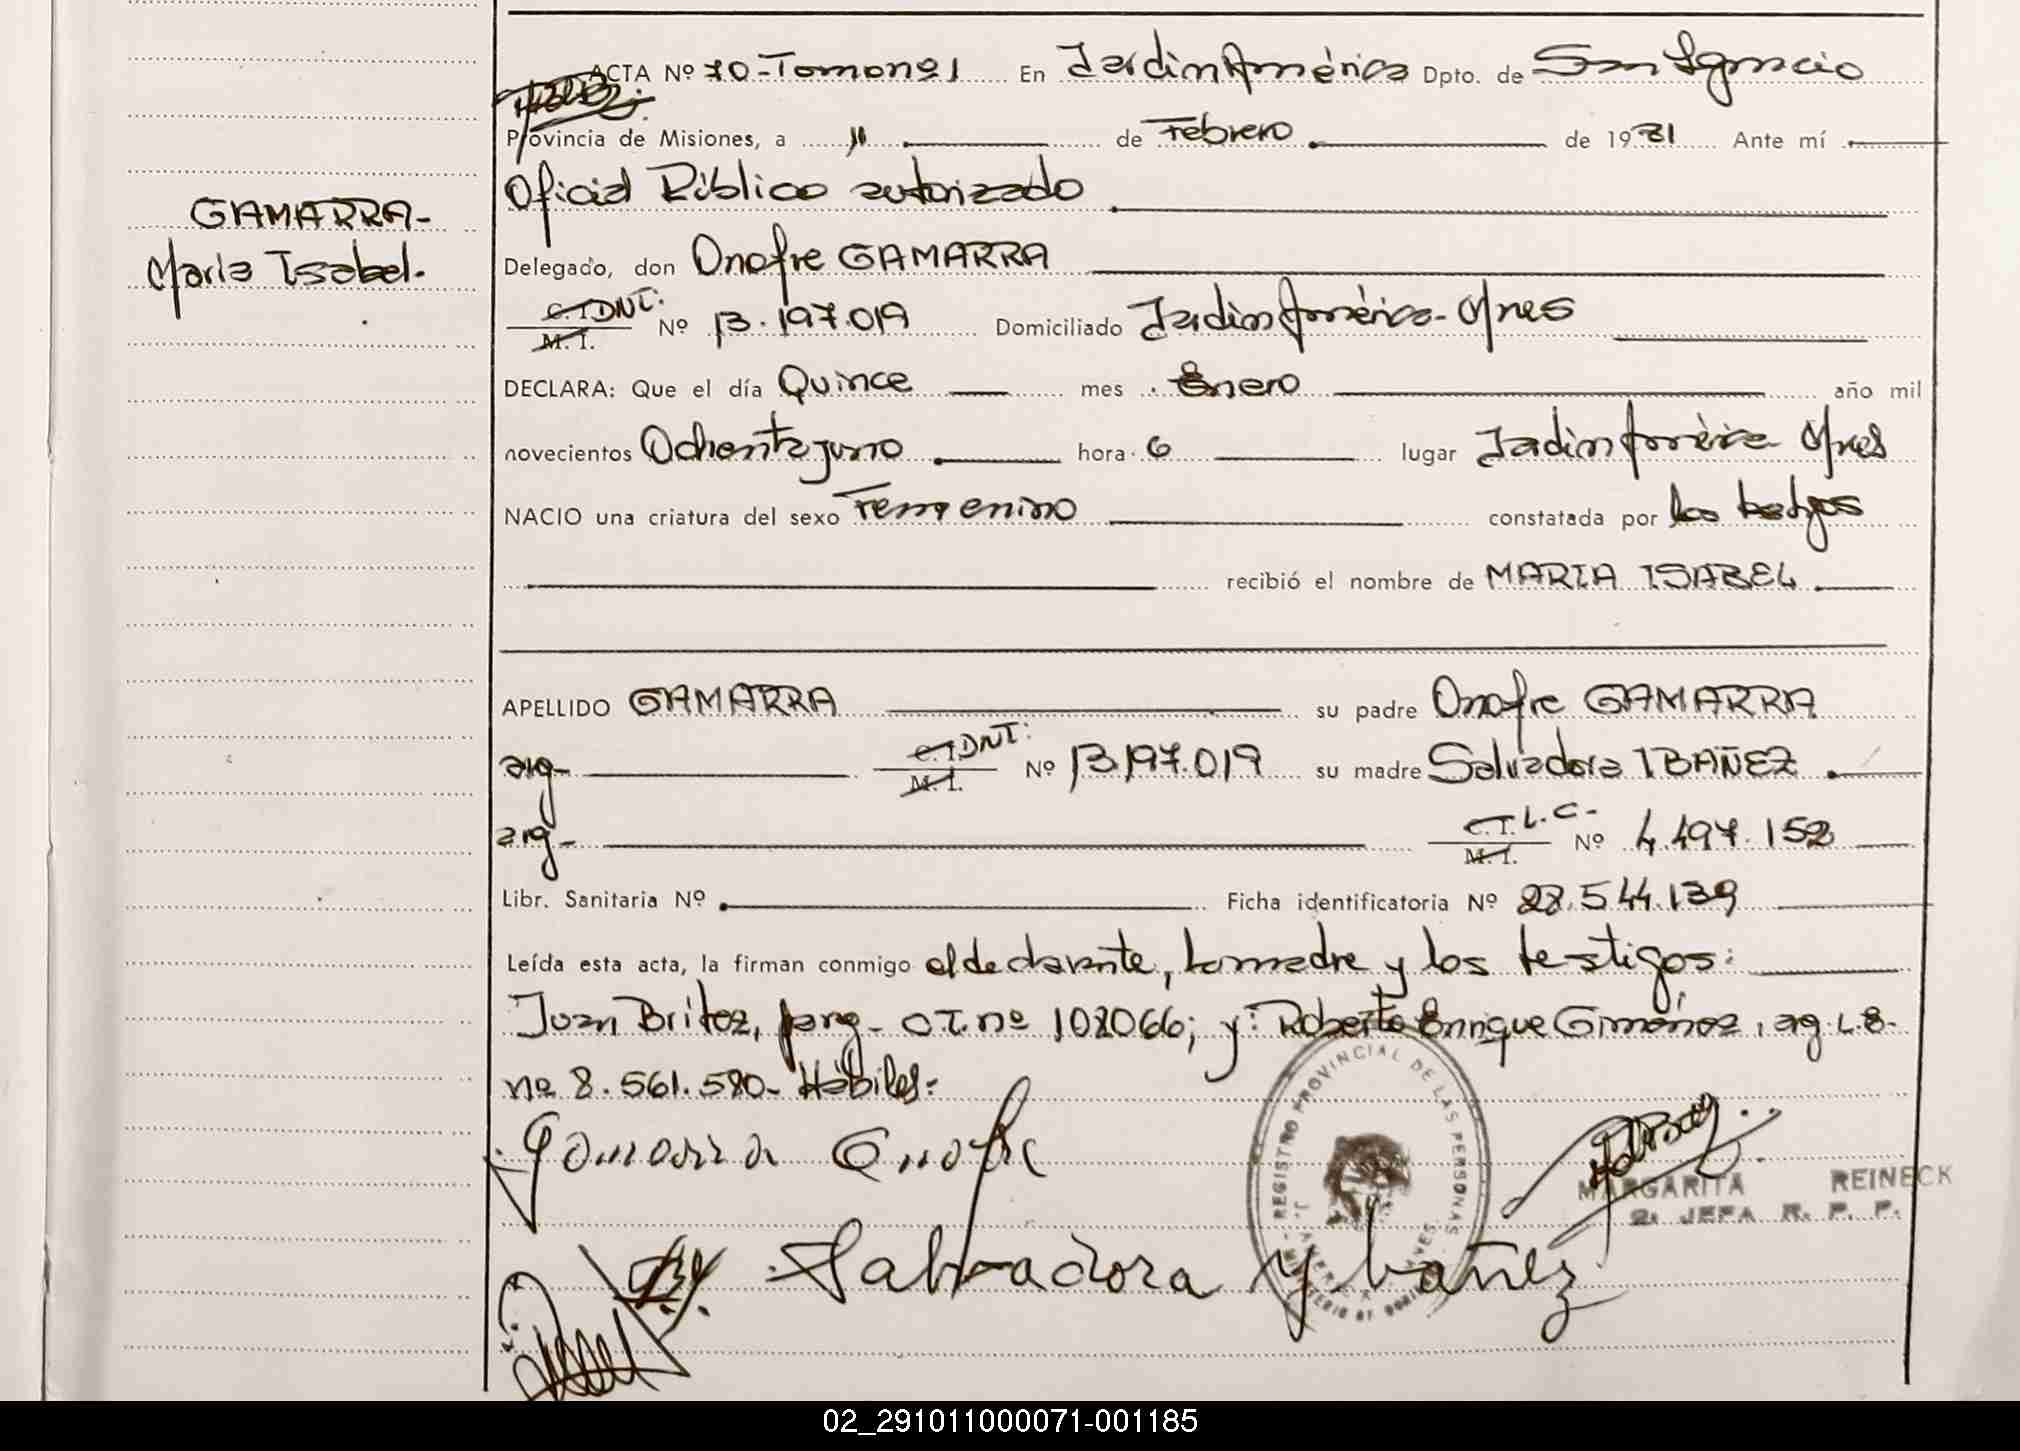 ACTA Nº 70-Tomo nº 1 En Jardín América Dpto. de San Ignacio
Provincia de Misiones, a 11 de Febrero de 1981 Ante mí
Oficial Público autorizado
GAMARRA-
María Isabel.
Delegado, don Onofre GAMARRA
C.I. DNI: M.I. Nº 13.197.019 Domiciliado Jardín América-Mnes
DECLARA: Que el día Quince mes Enero año mil
novecientos Ochenta y uno hora 6 lugar Jardín América Mnes
NACIO una criatura del sexo Femenino constatada por los testigos
recibió el nombre de MARIA ISABEL
APELLIDO GAMARRA su padre Onofre GAMARRA
arg- C.I. DNI: M.I. Nº 13.197.019 su madre Salvadora IBAÑEZ
arg- C.I. L.C- M.I. Nº 4.497.152
Libr. Sanitaria Nº Ficha identificatoria Nº 28.544.139
Leída esta acta, la firman conmigo el declarante, la madre y los testigos:
Juan Britez, parg- CI. nº 102066; y: Roberto Enrique Gimenez, arg. L.E-
nº 8.561.580- Hábiles:
Gamarra Onofre
REGISTRO PROVINCIAL DE LAS PERSONAS
MARGARITA REINECK
2ª JEFA R. P. P.
Salvadora Ybañez
02_291011000071-001185